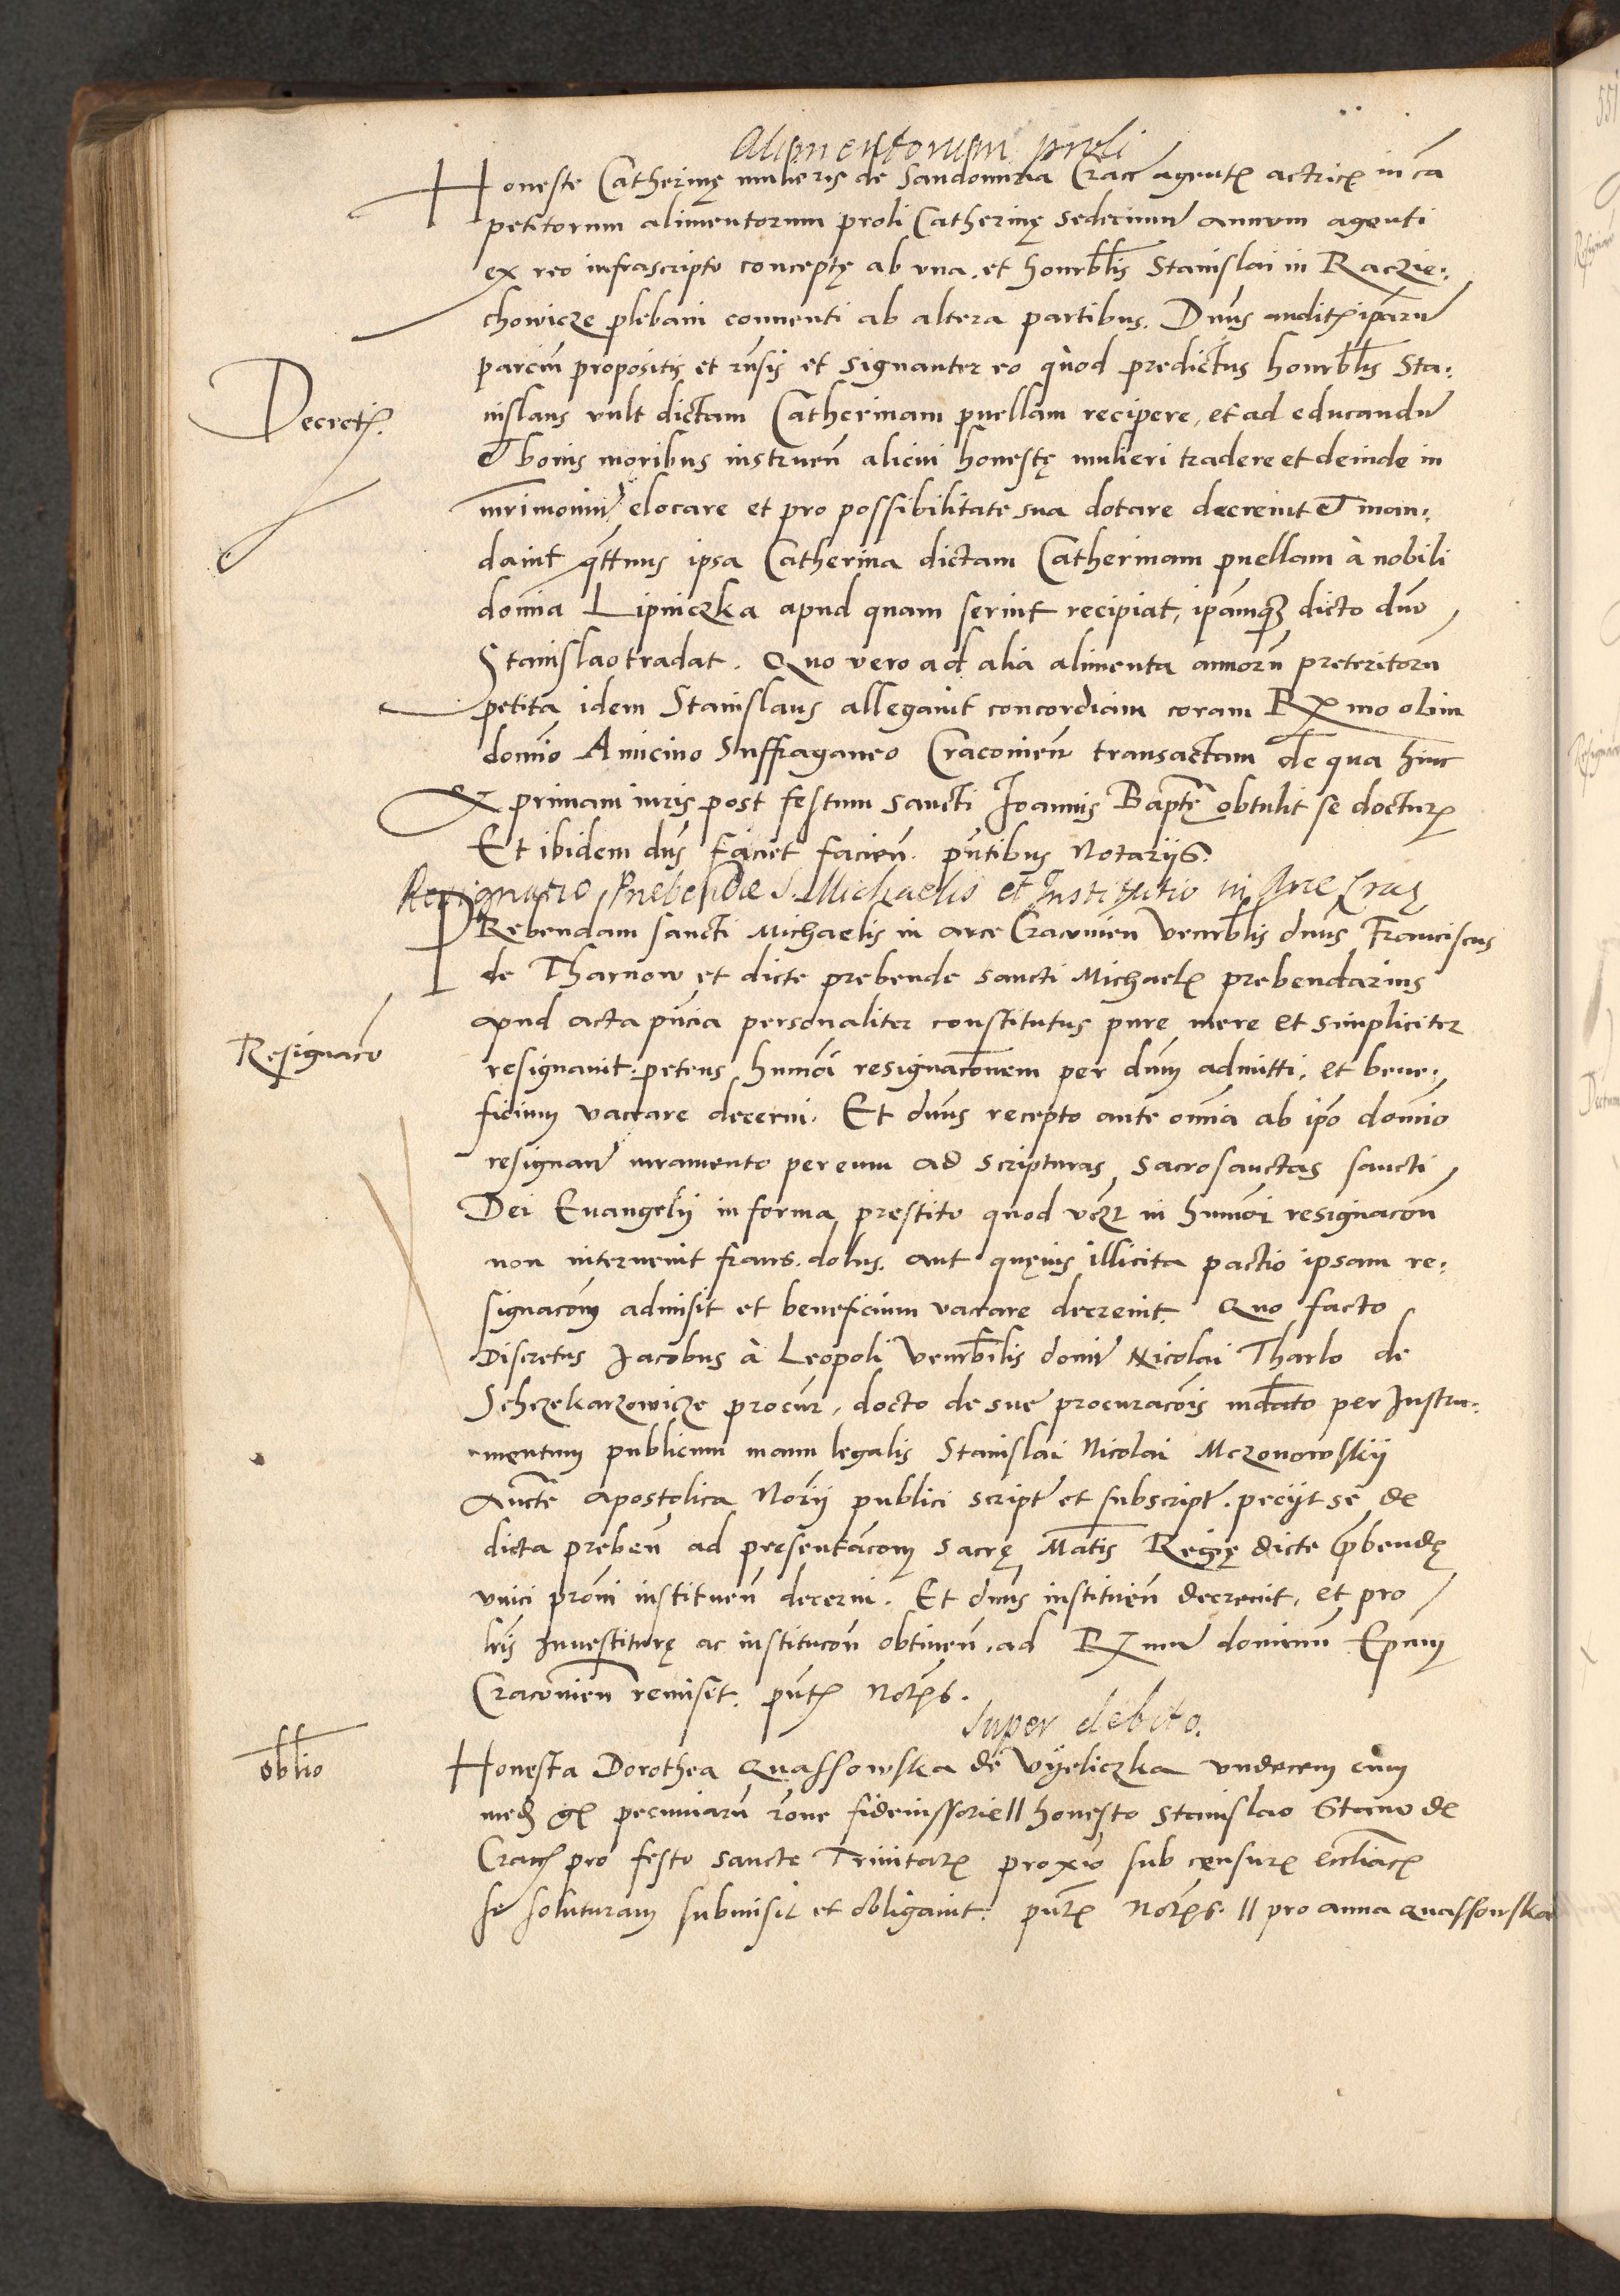 Alimentorum proli
Honeste Catherinę mulieris de Sandomiria Crac̄ agentꝭ actricꝭ in cā
petitorum alimentorum proli Catherinę sedecimū annum agenti
ex reo infrascripto conceptę ab vna. et honrblīs Stanislai in Raczie:
chowicze plebani conuenti ab altera partibus. Dnūs auditꝭ ipārū
parciū propositis et rn̄sis et signanter eo quod predictus honrblīs Sta:
Decretꝭ.
nislaus vult dictam Catherinam puellam recipere, et ad educandū
et bonis moribus instruen̄ alicui honestę mulieri tradere et deinde in
mr̄imoniū elocare et pro possibilitate sua dotare decreuit et man:
dauit qt̄tnus ipsa Catherina dictam Catherinam puellam à nobili
domīa Lipniczka apud quam seruit recipiat, ipāmqꝫ dicto dn̄o
Stanislao tradat. Quo vero ad alia alimenta annorū preteritorū
petita idem Stanislaus allegauit concordiam coram Rx̄mo olim
domīo Amicino Suffraganeo Cracouien̄ transactam de qua hinc
ad primam iuris post festum sancti Joannis Baptē obtulit se docturꝭ
Et ibidem dn̄s faciet facien̄. pn̄tibus Notarijs.
Resignatio Praebendae S. Michaelis et Institutio in Arce Crac
PRebendam sancti Michaelis in arce Cracouien̄ Venrblīs dnūs Franciscus
de Tharnow et dicte prebende sancti Michaelꝭ prebendarius
apud acta pn̄cia personaliter constitutus pure mere et simpliciter
Resignacō
resignauit. petens hmōi resignacōnem per dnūm admitti, et bene:
ficium vaccare decerni. Et dnūs recepto ante omīa ab ipō domīo
resignan̄ iuramento per eum ad scripturas sacrosanctas sancti
Dei Euangelij in forma prestito quod vcz̄ in hmōi resignacōn
non interuenit fraus. dolus. aut quęuis illicita pactio ipsam re:
signacōm admisit et beneficium vaccare decreuit. Quo facto
Discretus Jacobus à Leopoli Venrblīlis domī Nicolai Tharlo de
Schczekarzowicze procūr, docto de sue procuracōis mdāto per Instru:
mentum publicum manu legalis Stanislai Nicolai Mczonowskij
Auctē apostolica Norīj publici script̄ et subscript̄. pecijt se de
dicta preben̄ ad presentacōm sacrę Matīs Regię dicte prebendę
vnici pronī instituen̄ decerni. Et dnūs instituen̄ decreuit, et pro
lrīs Inuestiturę ac institucōn obtinen̄. ad Rx̄mū dominum Epūm
Cracouien̄ remisit. pn̄tꝭ Notꝭs.
Super debito.
oblīo
Honesta Dorothea Quassowska de Vyeliczka vndecem cum
med gꝭ pecuniarū rōne fideiussorie || honesto Stanislao Stano de
Cracꝭ pro festo sancte Trinitatꝭ proxīo sub censurꝭ eccliācꝭ
se soluturam submisit et obligauit. pn̄tꝭ Notꝭs. || pro anna quassowska